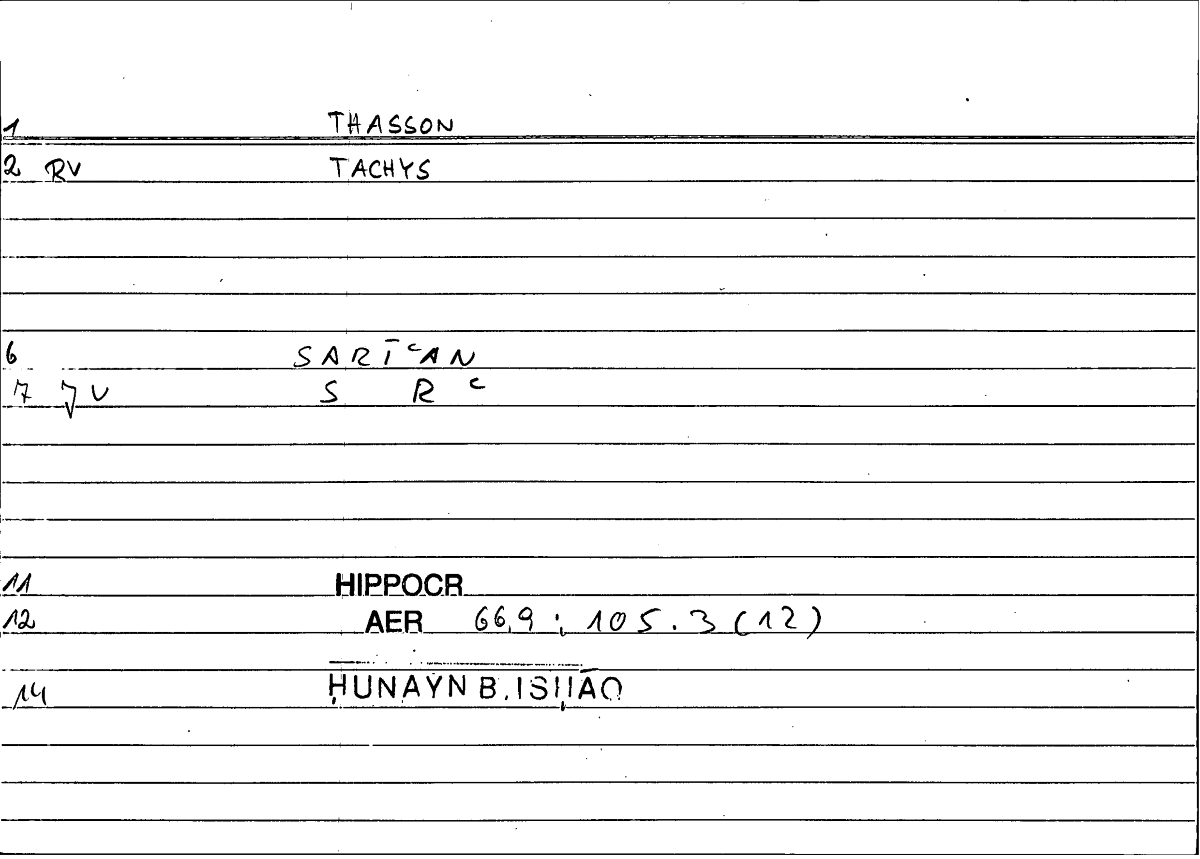 1 THASSON
2 RV TACHYS
6 SARĪᶜAN
7 V S R ᶜ
11 HIPPOCR
12 AER 66,9 ; 105.3 (12)
14 ḤUNAYN B. ISḤĀQ